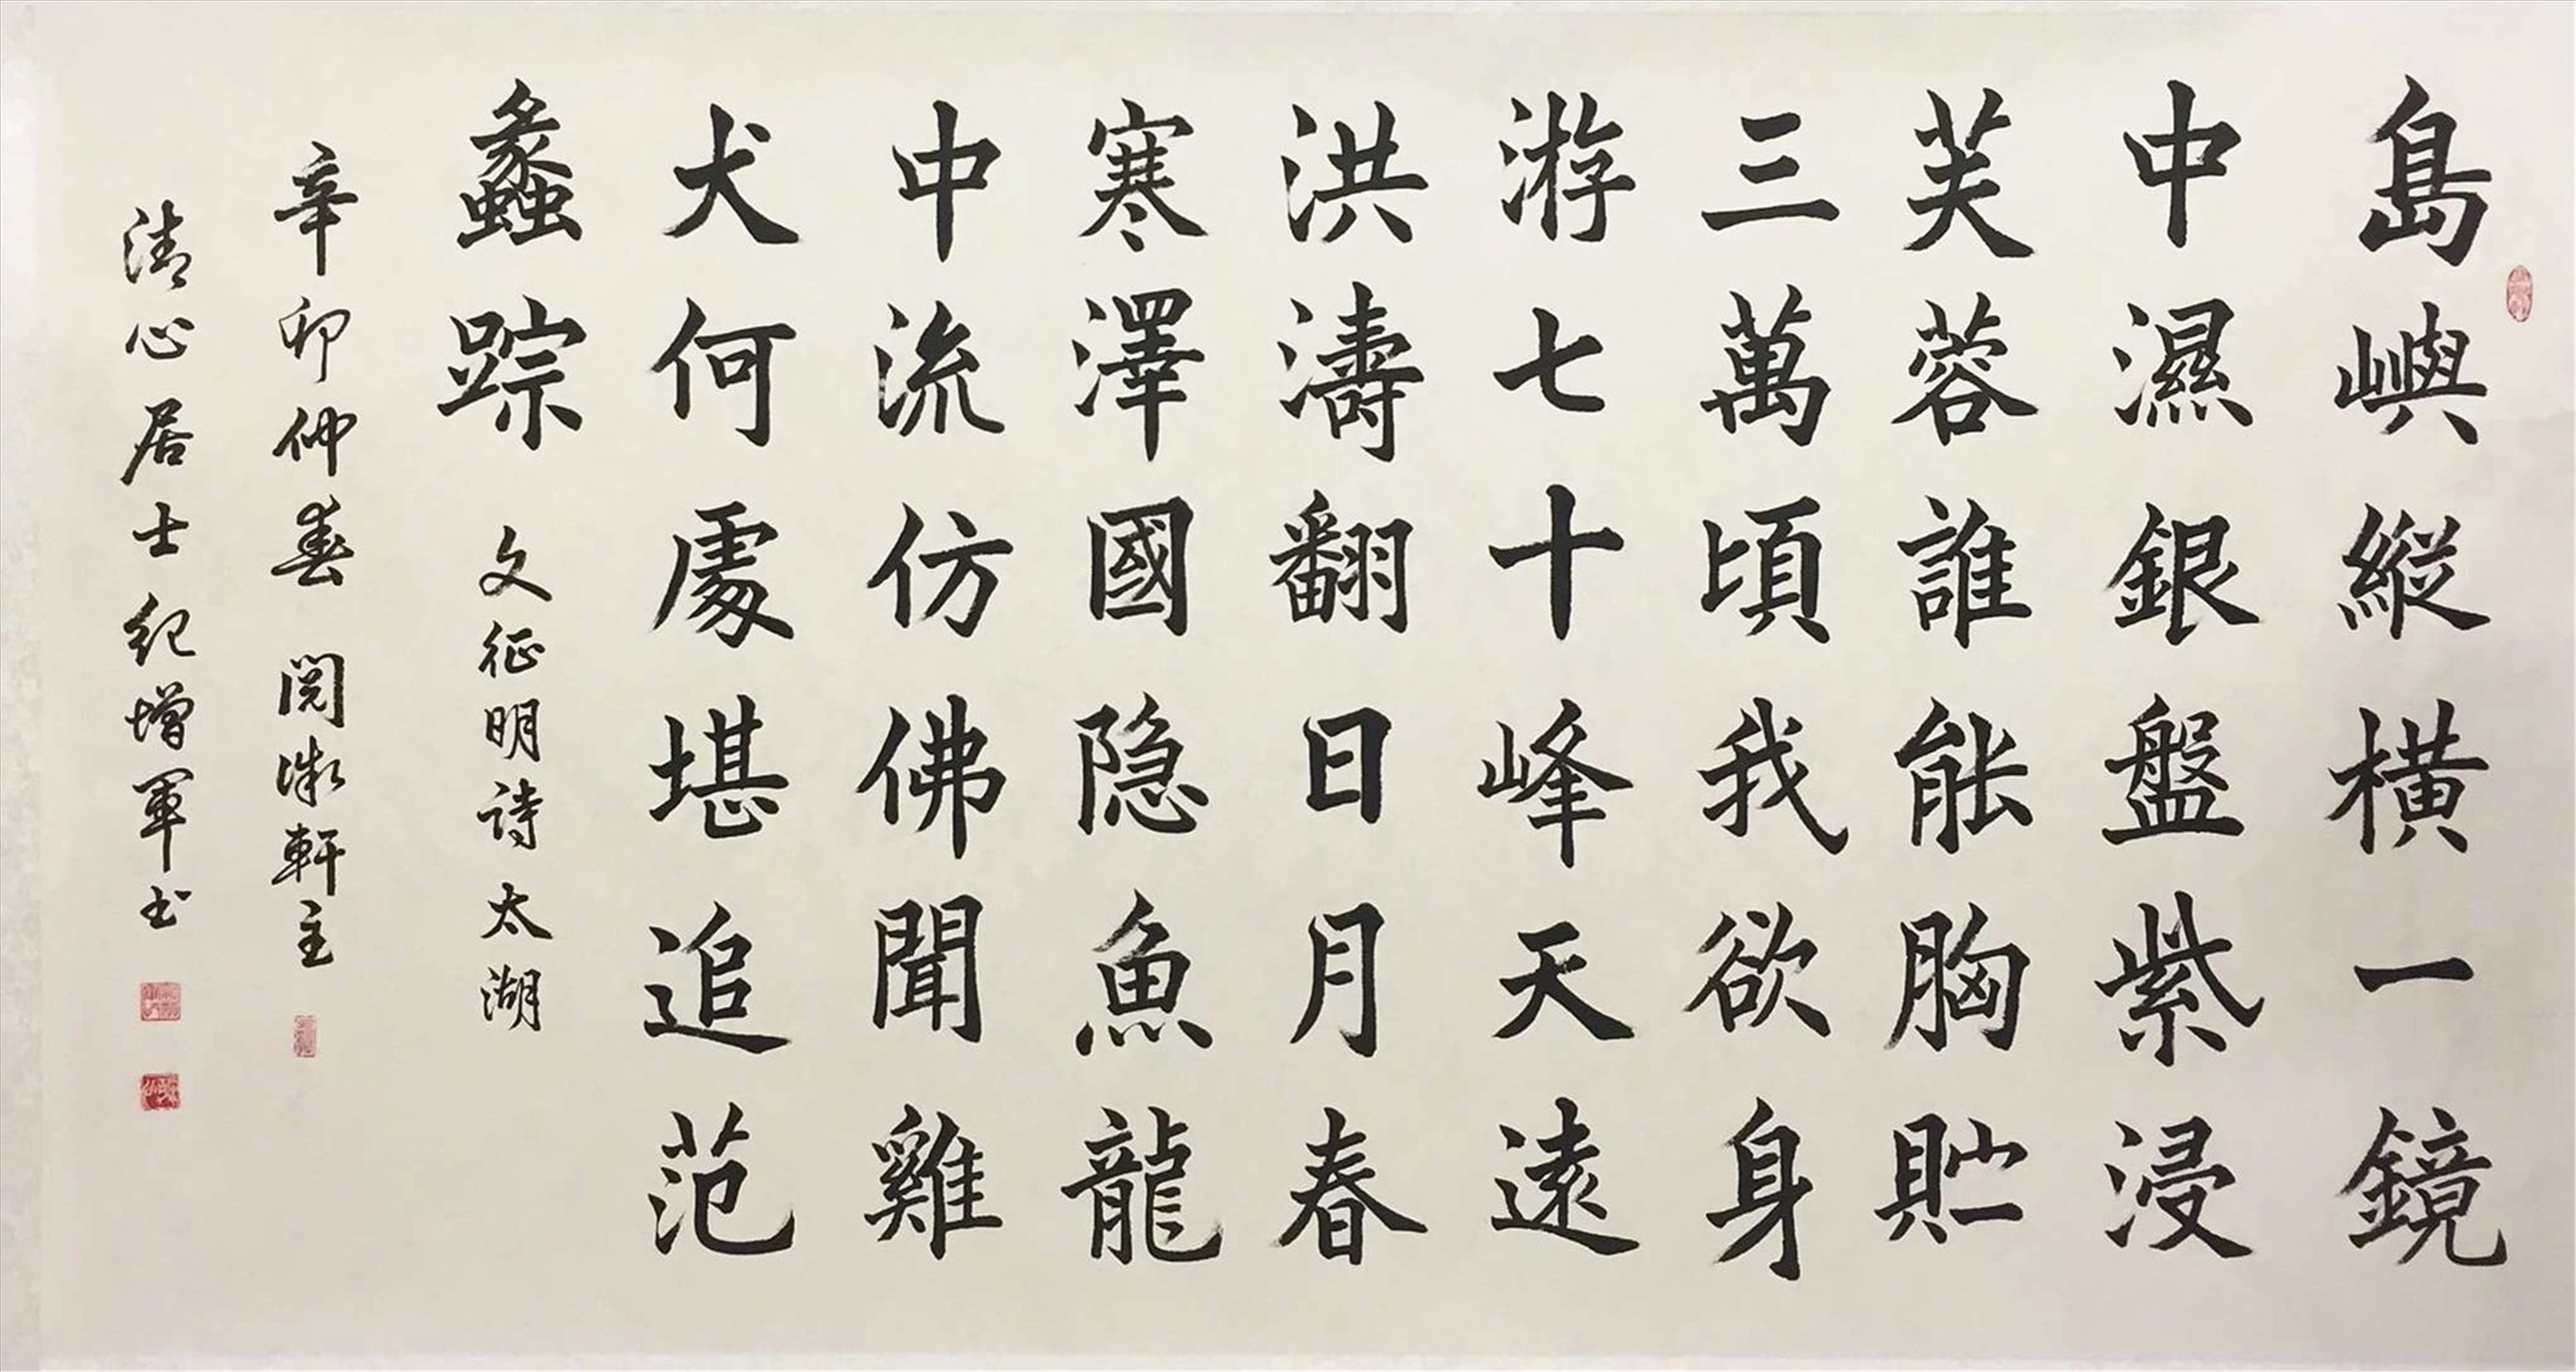 島嶼縱橫一鏡
中濕銀盤紫浸
芙蓉誰能胸貯
三萬頃我欲身
游七十峰天遠
洪濤翻日月春
寒澤國隐魚龍
中流仿佛聞雞
犬何處堪追范
蠡踪 文征明詩太湖
辛卯仲春 閱微軒主
清心居士紀增軍书